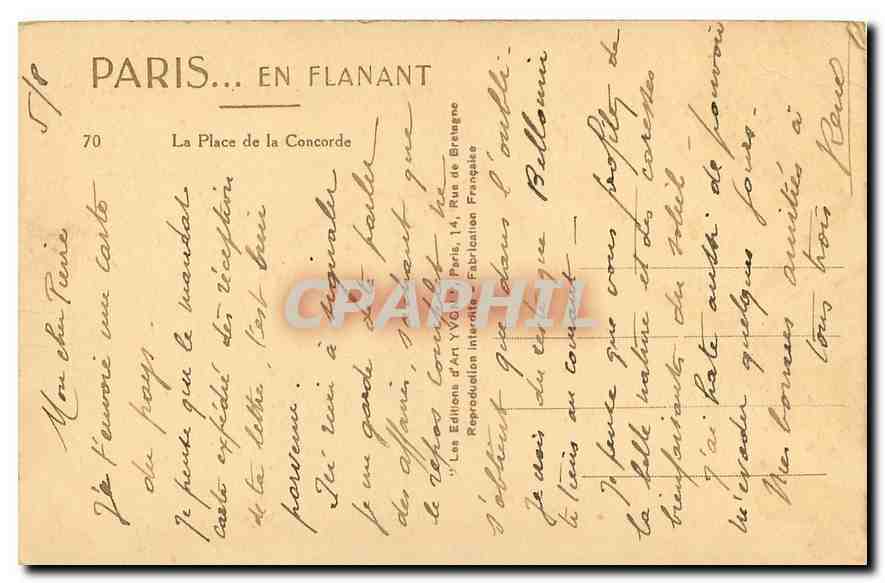 PARIS... EN FLANANT
70 La Place de la Concorde
"Les Editions d'Art YVON", Paris, 14, Rue de Bretagne
Reproduction interdite - Fabrication Française
CPARAMA
5/8
Mon cher Pierre
Je t'envoie une carte
du pays.
Je pense que le mandat
carte expédié dès réception
de ta lettre, t'est bien
parvenu.
rien à signaler
je me garde de te parler
des affaires, sachant que
le repos complet ne
s'obtient que dans l'oubli.
Je crois du reste que Bellouin
te tiens au courant —
Je pense que vous profitez de
la belle nature et des caresses
bienfaisantes du soleil —
J'ai hâte aussi de pouvoir
m'évader quelques jours.
Mes bonnes amitiés à
tous trois
René